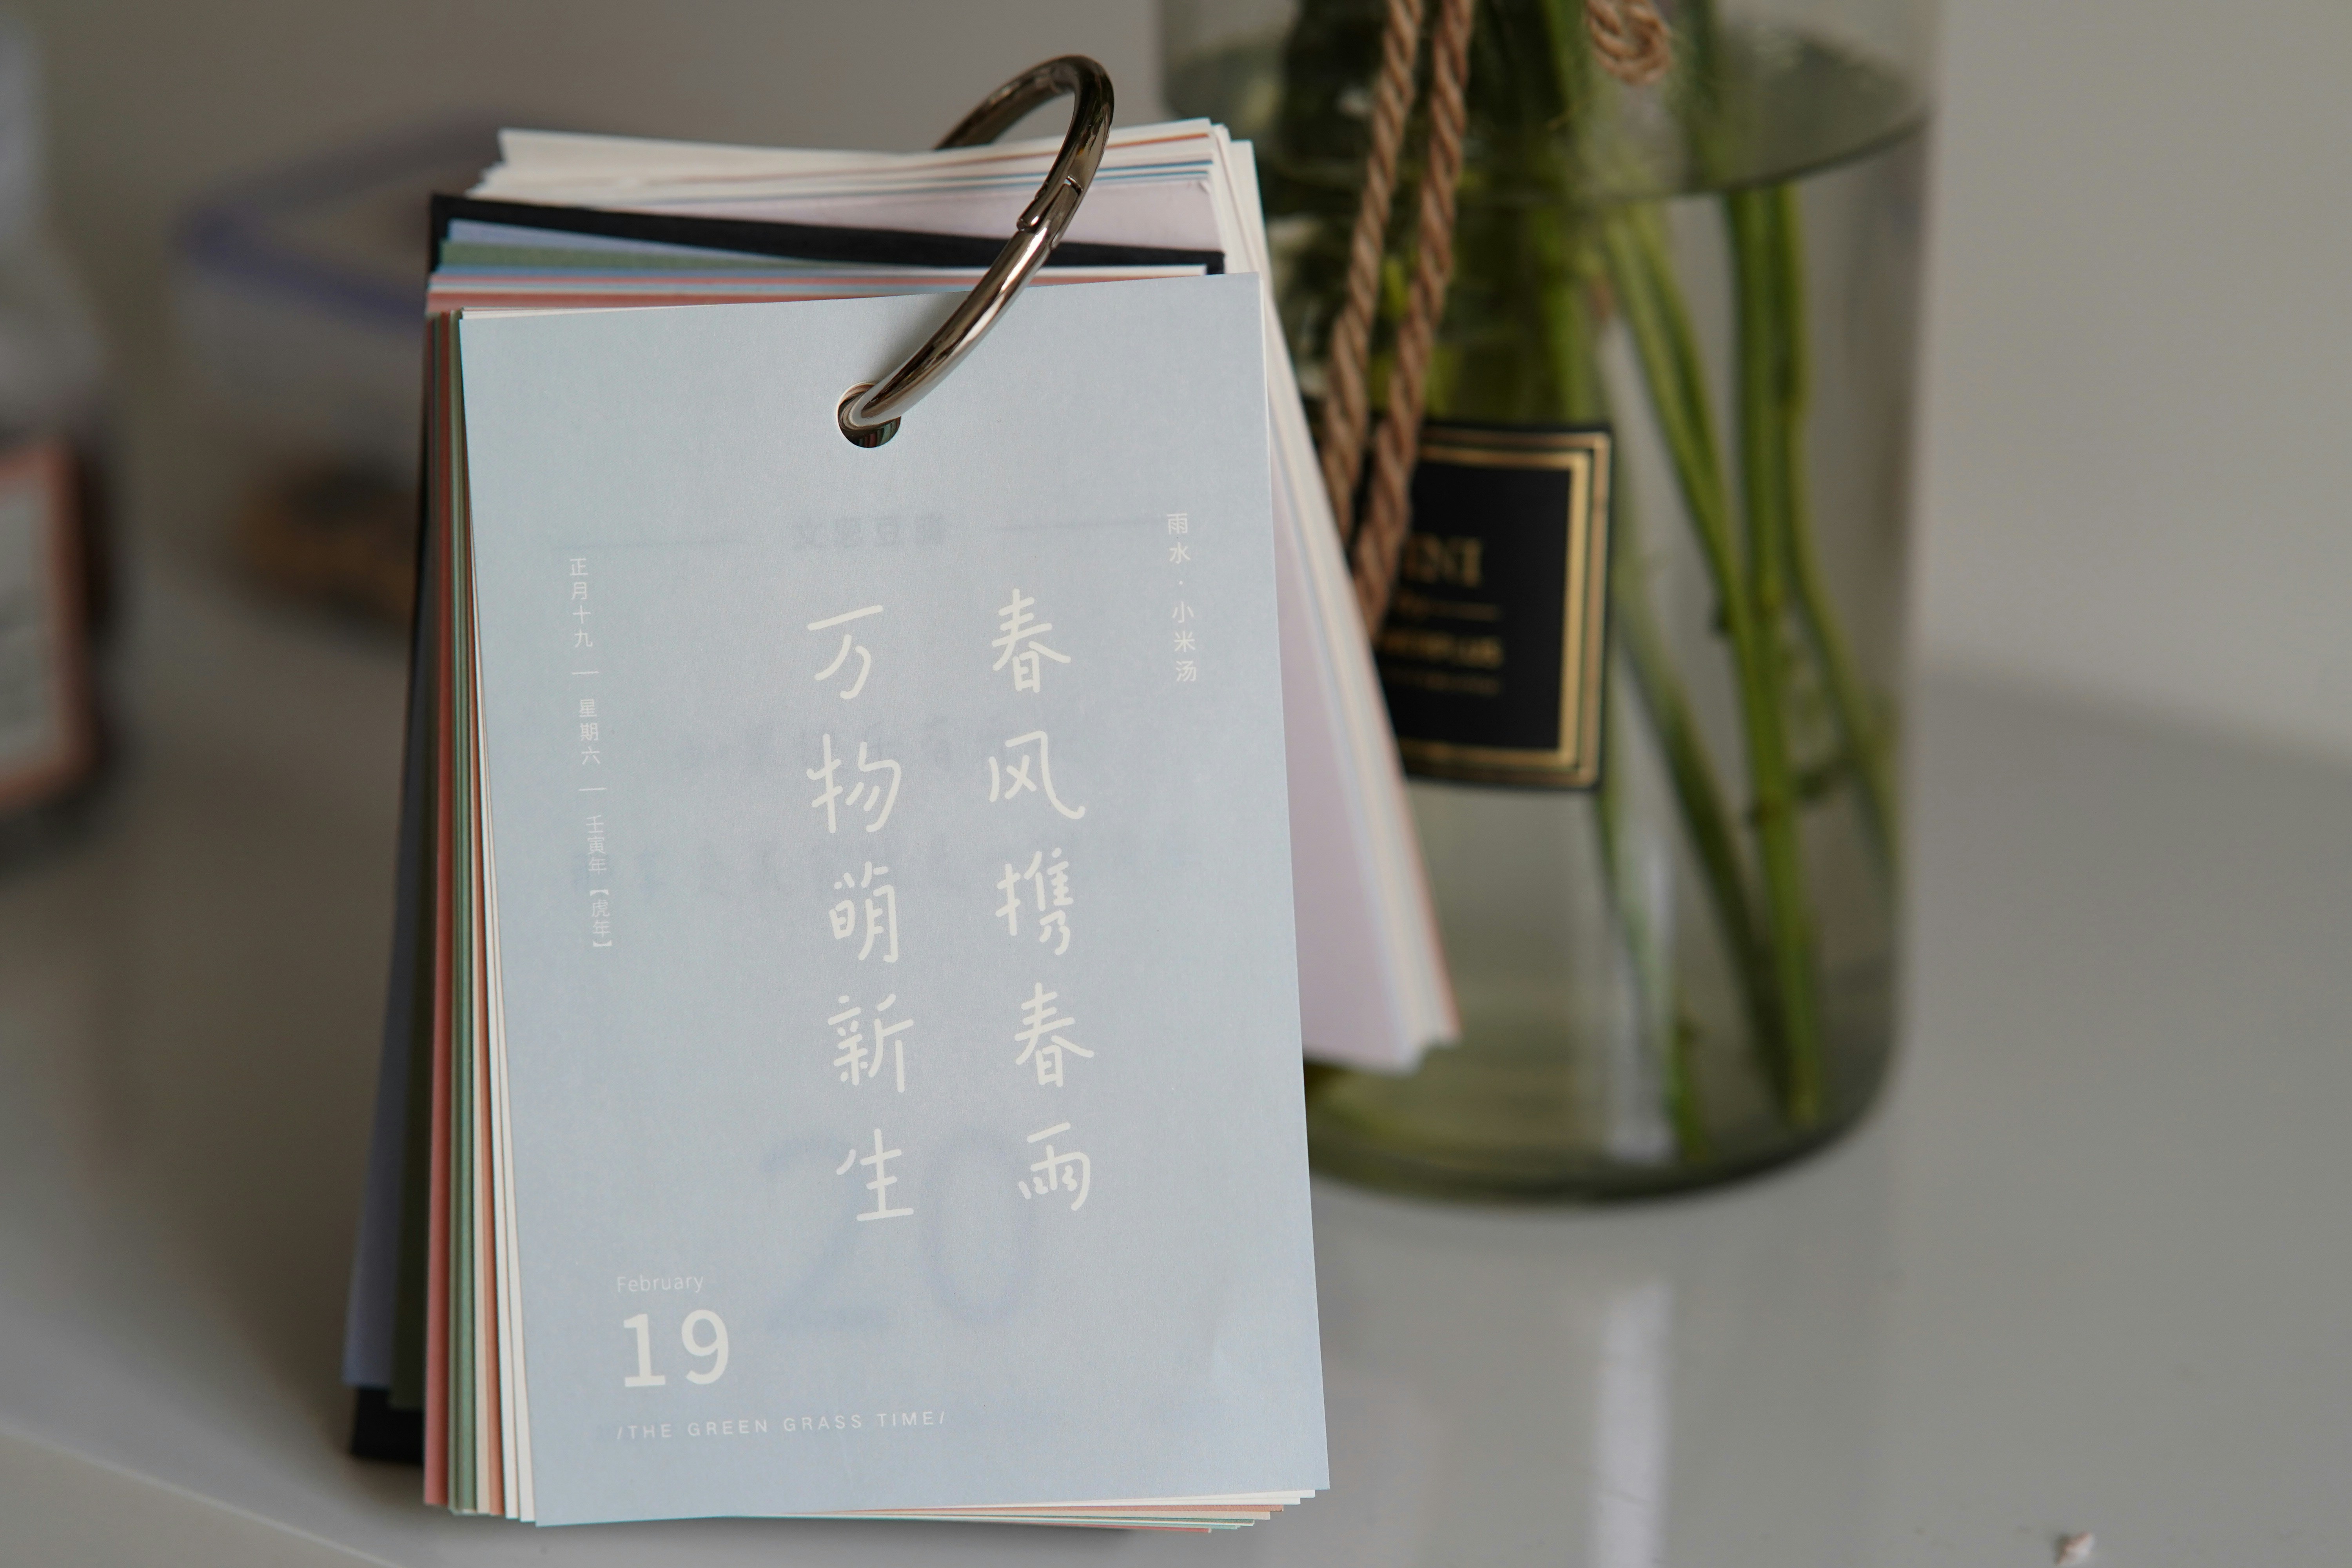 雨水·小米汤
春风携春雨
万物萌新生
正月十九 — 星期六 — 壬寅年【虎年】
February
19
/THE GREEN GRASS TIME/
20